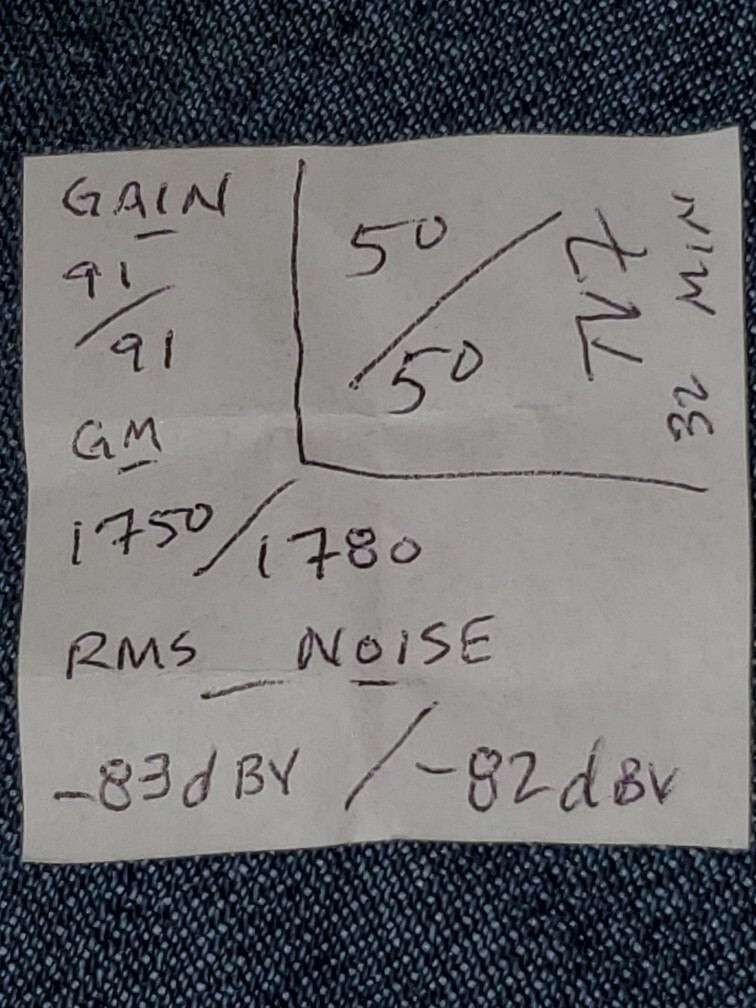 GAIN
91/91
50/50
TV7
32 MIN
GM
1750/1780
RMS NOISE
-83dBV/-82dBV